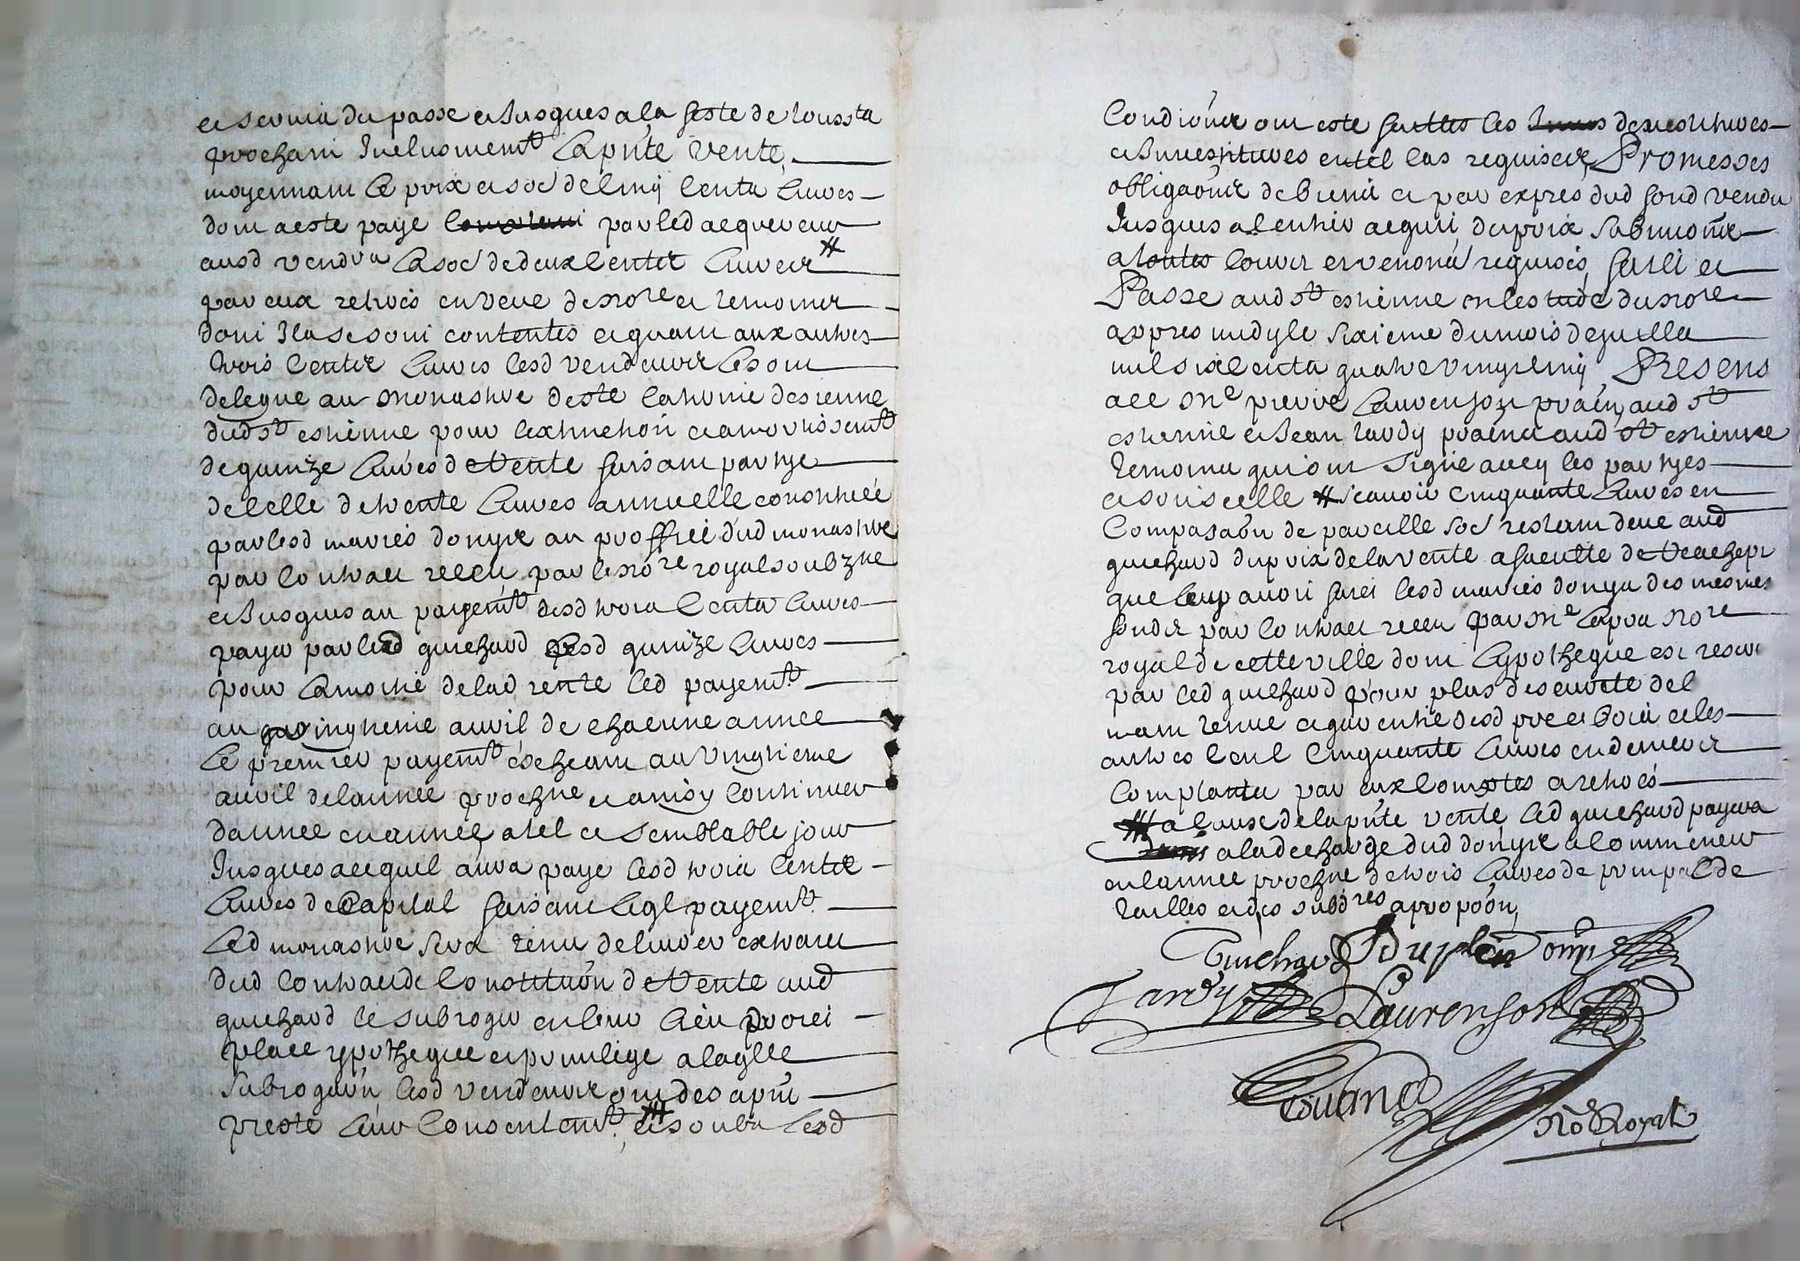 et servis du passe et Jusques a la feste de touss.ts
prochain Inclusivem.t La pnte vente
moyennant le prix et so.e de Cinq Cents Livres
dont a este paye par led acquereur
ausd vendrs La so.e de deux Cents Livres #
par eux retirés en veue de no.re et temoins
dont Ilz se sont contentés et quant aux autres
trois Cents Livres lesd vendeurs Les ont
delegue au monastere de ste Catherine de sienne
dud s.t estienne pour lextinction et amortissem.t
de quinze Livres de Rente faisant partye
de Celle de trente Livres annuelle constituée
par lesd mariés donyx au proffict dud monastere
par Contract receu par le no.re royal soubz.ne
et Jusques au payem.t desd trois Cents Livres
payra par led guichard lesd quinze Livres
pour La moitié de lad rente led payem.t
au vingtieme avril de chacune annee
Le premier payem.t escheant au vingtieme
avril de lannee proch.ne et ainsy Continuer
dannee en annee a tel et semblable jour
Jusques a ce quil aura paye lesd trois Cents
Livres de Capital faisant leql payem.t
Led monastere sera tenu delivrer extraict
dud Contract de Constituõn de Rente aud
guichard le subroger en leur lieu droict
place ypotheque et privilege a laqlle
subrogaõn lesd vendeurs ont des apnt
presté Leur Consentem.t, et soubz Lesd
Conditions ont este faittes les devestitures
et Investitures en tel Cas requises, Promesses
obligaõns de biens et par expres dud fond vendu
Jusques a lentier acquit du prix submoñs
a toutes Cours et renonõn requises, fait et
Passe aud s.t estienne en lestude du no.re
appres midy le sixieme du mois de juillet
mil six Cents quatre vingt Cinq PResens
a ce m.e pierre Laurenson praen, aud s.t
estienne et Jean tardy praticn aud s.t estienne
temoins qui ont signe avec les partyes
# scavoir Cinquante Livres en
Compasaõn de pareille so.e restant deue aud
guichard du prix de la vente a faculté de Reachept
que leur avoit fait lesd mariés donyx des mesmes
fonds par Contract receu par m.e Lapra no.re
royal de cette ville dont Lypotheque est reservé
par led guichard pour plus de seureté del
autres Cent Cinquante Livres en deniers
Comptants par eux Comptés et retirés
### a Cause de la pnte vente Led guichard payera
a la descharge dud donyx a Commencer
en lannee proch.ne de trois Livres de principal de
tailles et des subd.res a propoõn,
Guichard Duplein
Tardy Laurenson
No.e Royal